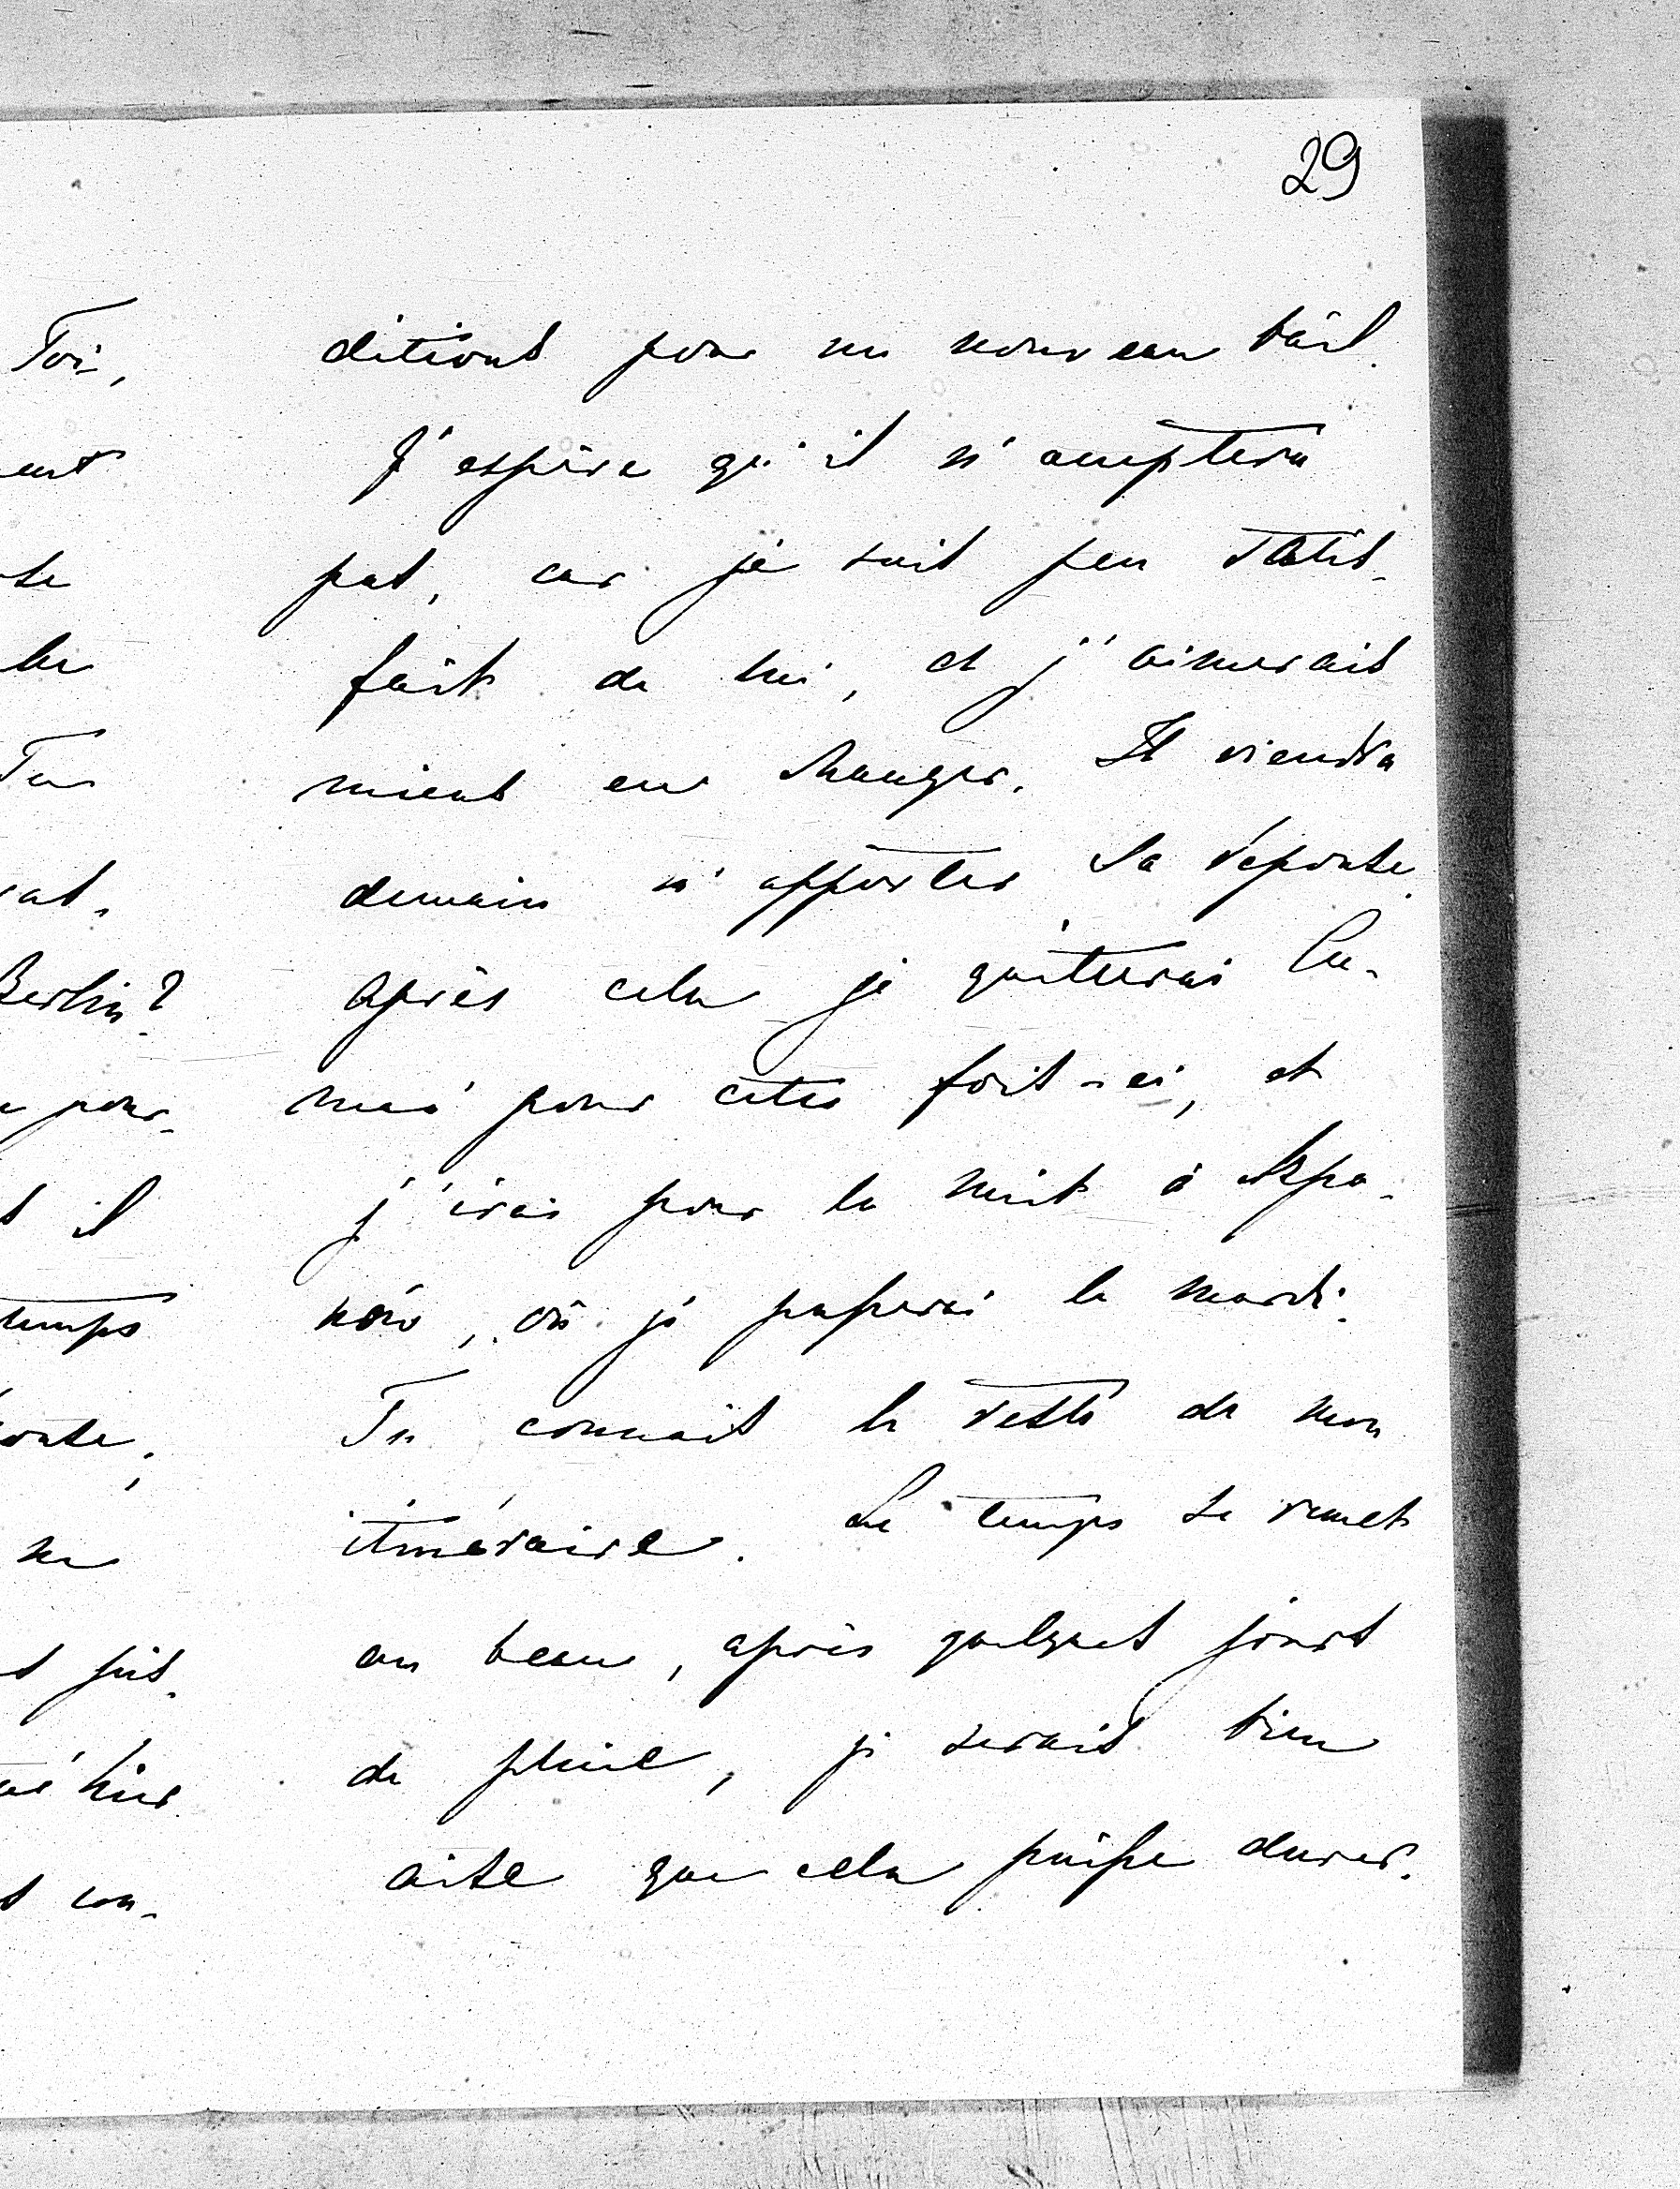 29
Toi,
Tu
Berlin?
pour-
il
temps
con-
ditions pour un nouveau bail.
J'espère qu'il n'acceptera
pas, car je suis peu satis-
fait de lui, et j'aimerais
mieux en changer. Il viendra
demain m'apporter sa réponse.
Après cela je quitterai
pour cette fois-ci, et
j'irai pour la nuit à Szpa-
nów, où je passerai le mardi.
Tu connais le reste de mon
itinéraire. Le temps se remet
au beau, après quelques jours
de pluie, je serais bien
aise que cela puisse durer.